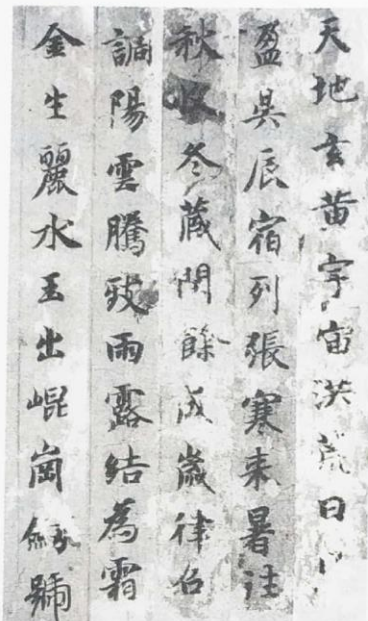 天地玄黄宇宙洪荒日
盈昃辰宿列張寒来暑往
秋收冬藏閏餘成歲律召
調陽雲騰致雨露結為霜
金生麗水玉出崐崗劒號